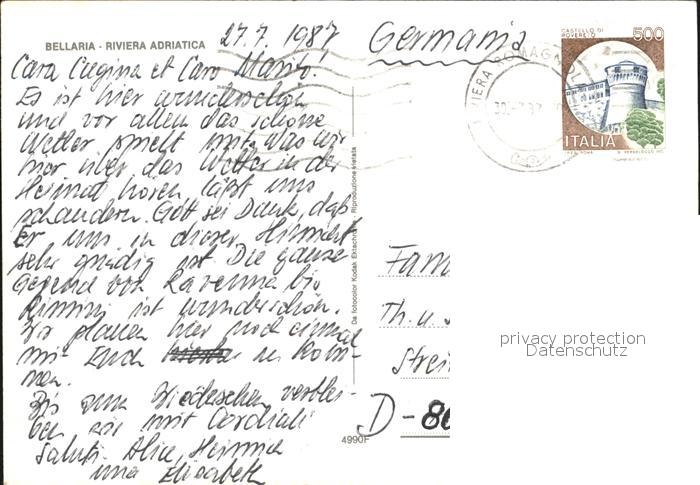 BELLARIA - RIVIERA ADRIATICA
27.7.1987
Germania
Cara Regina et Caro Mario!
Es ist hier wunderschön
und vor allem das schöne
Wetter spielt mit. Was wir
hier über das Wetter in der
Heimat hören läßt uns
schaudern. Gott sei Dank, daß
Er uns in dieser Hinsicht
sehr gnädig ist. Die ganze
Gegend von Ravenna bis
Rimini ist wunderschön.
Wir planen hier noch einmal
mit Euch zu kom-
men.
Bis zum Wiedersehen verblei-
ben wir mit Cordiali
Saluti. Alice, Heinrich
und Elisabeth
Da fotocolor Kodak Ektachrome Riproduzione vietata
4990F
CASTELLO DI
ROVERETO
500
ITALIA
Fam
Th. u.
Strei
D-80
privacy protection
Datenschutz